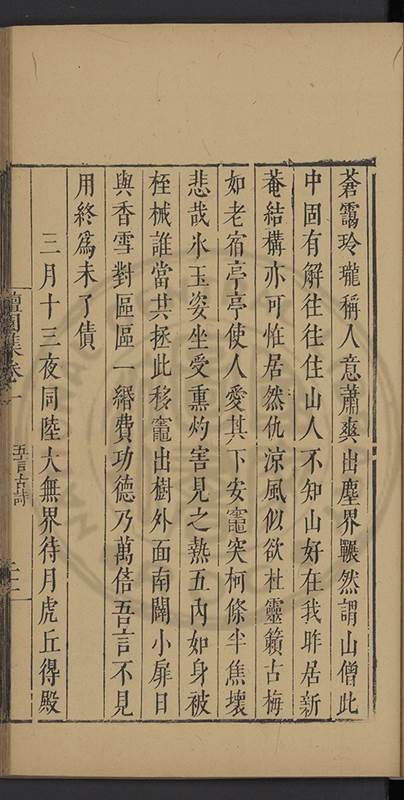 蒼靄玲瓏稱人意蕭爽出塵界囅然謂山僧此
中固有解往往住山人不知山好在我昨居新
菴結構亦可恠居然仇涼風似欲杜靈籟古梅
如老宿亭亭使人愛其下安竈突柯條半焦壞
悲哉氷玉姿坐受熏灼害見之熱五內如身被
桎械誰當共拯此移竈出樹外面南闢小扉日
與香雪對區區一緡費功德乃萬倍吾言不見
用終爲未了債
三月十三夜同陸大無界待月虎丘得殿
檀園集卷一
五言古詩